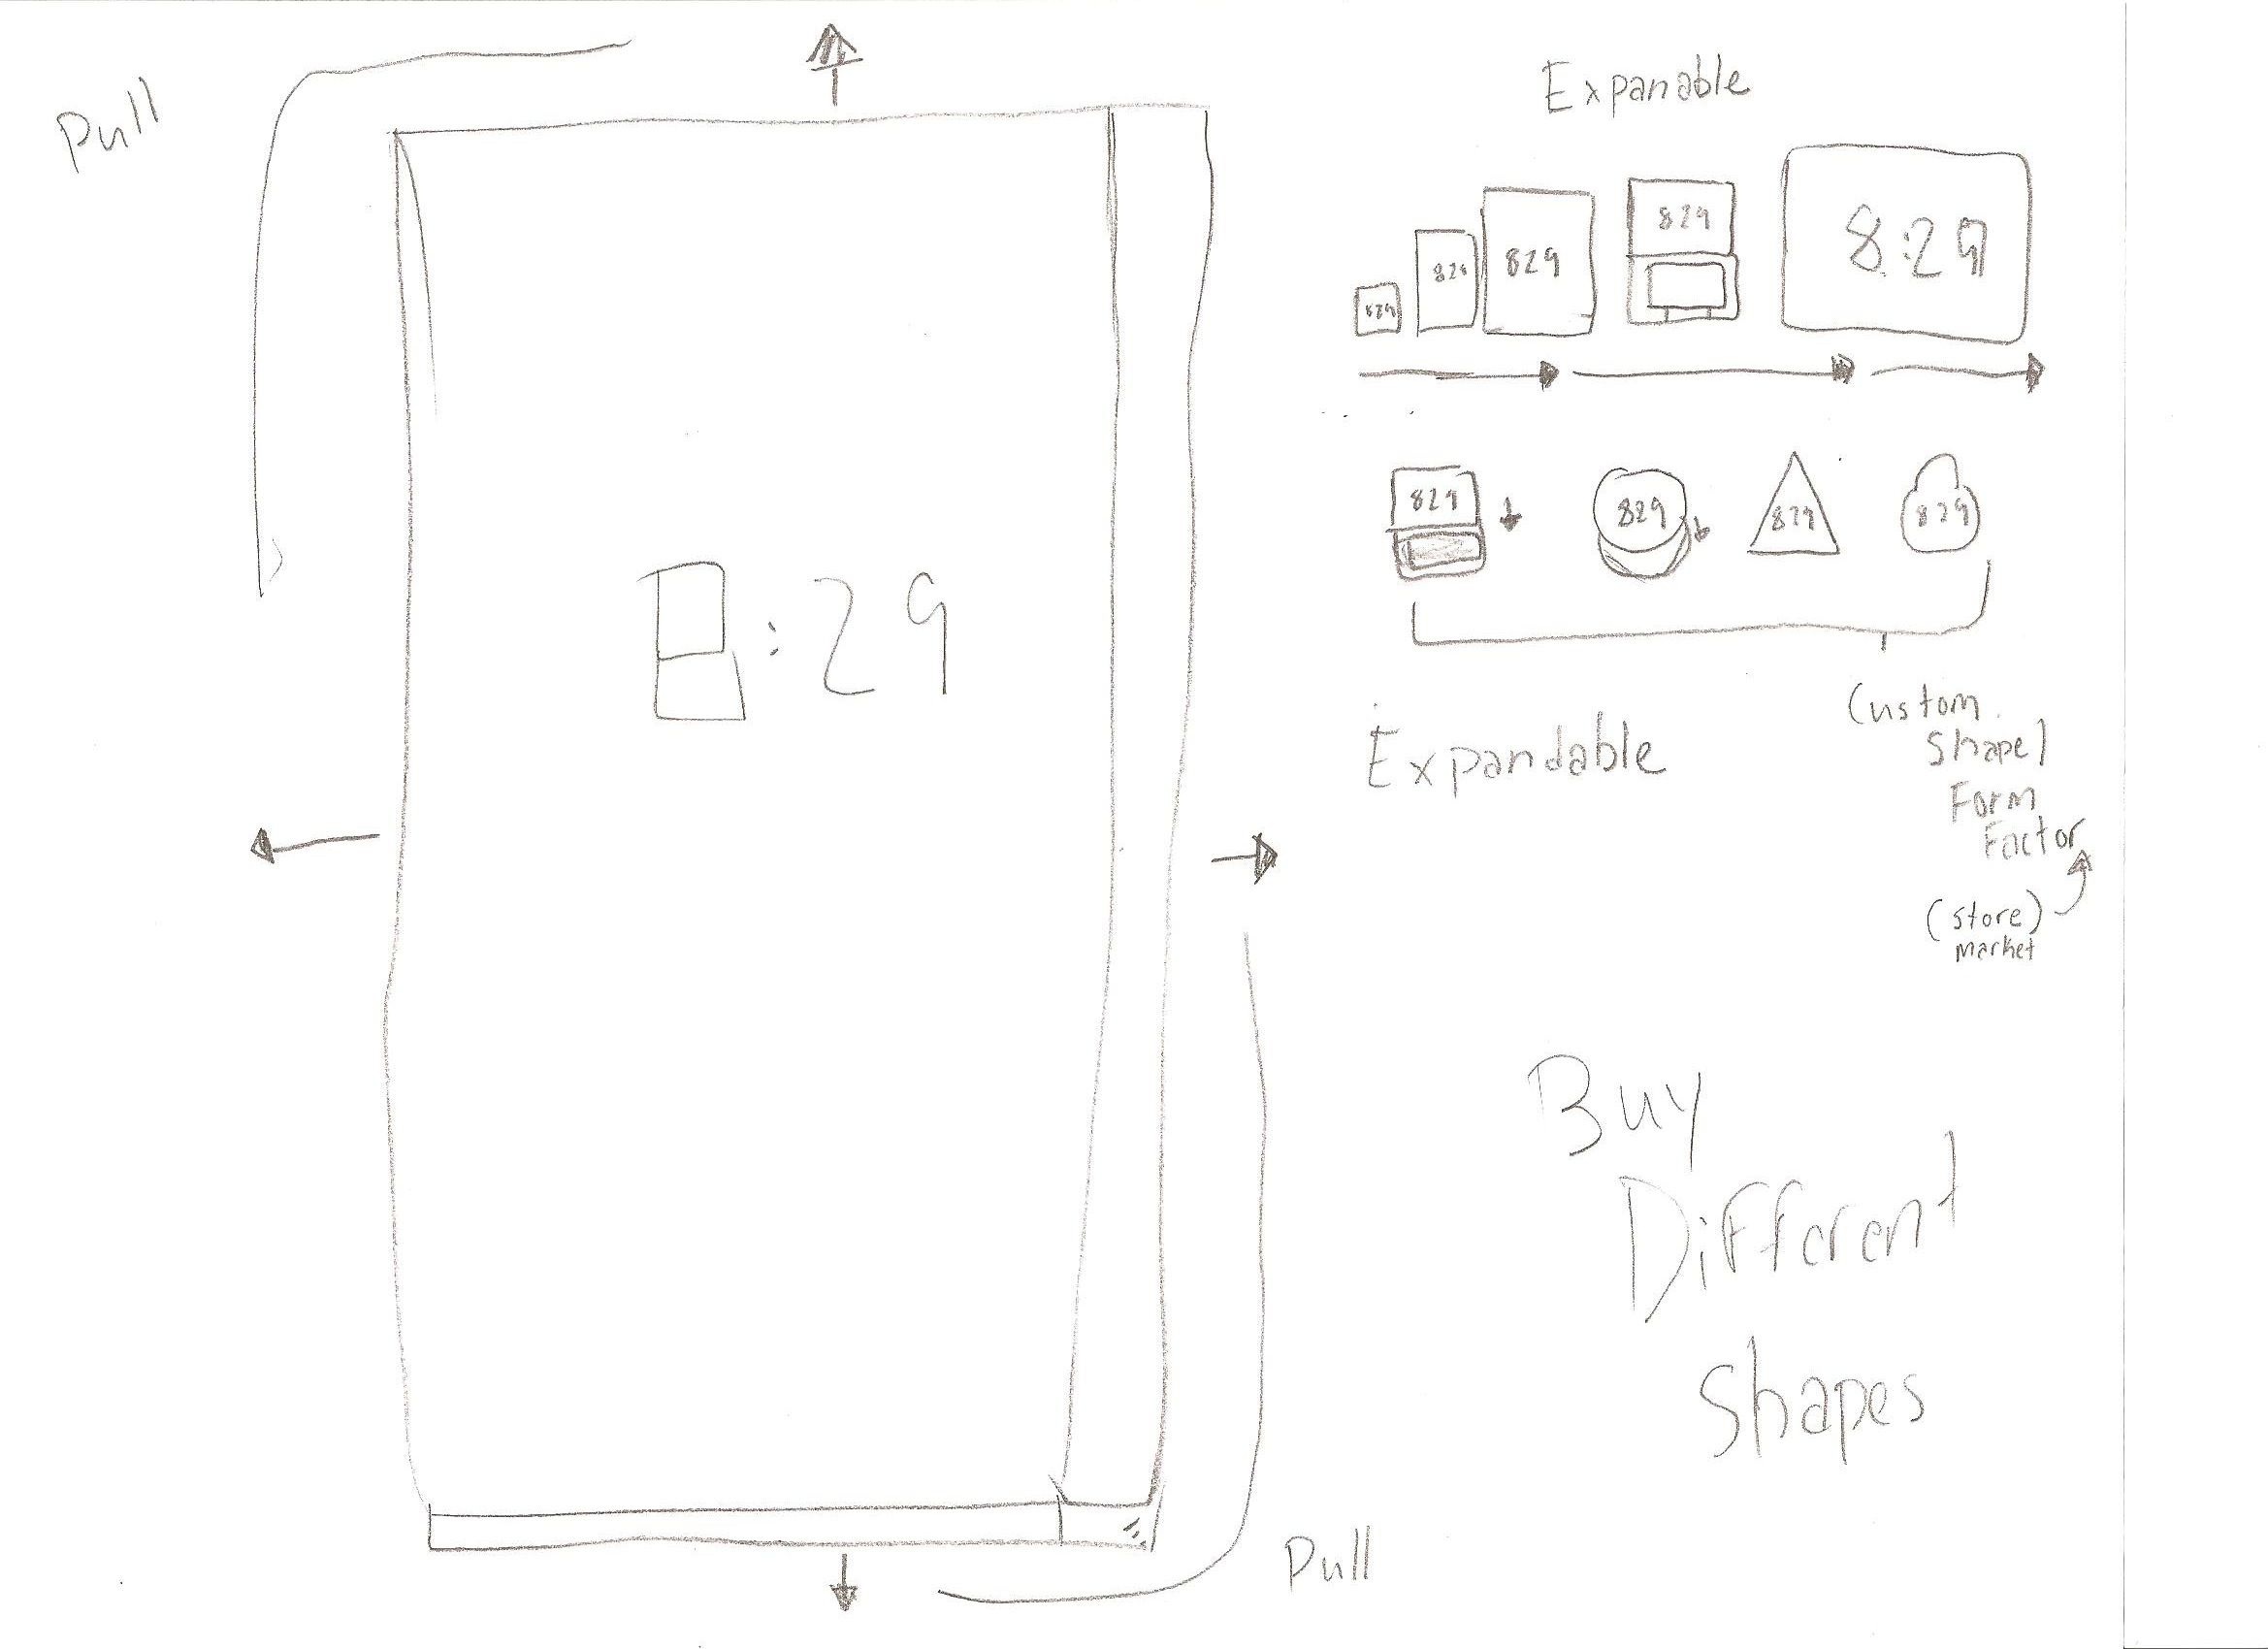 Pull
8:29
Pull
Expanable
829
829
829
829
8:29
829
829
829
829
Expandable
Custom
Shape)
Form
Factor
(store)
market
Buy
Different
Shapes